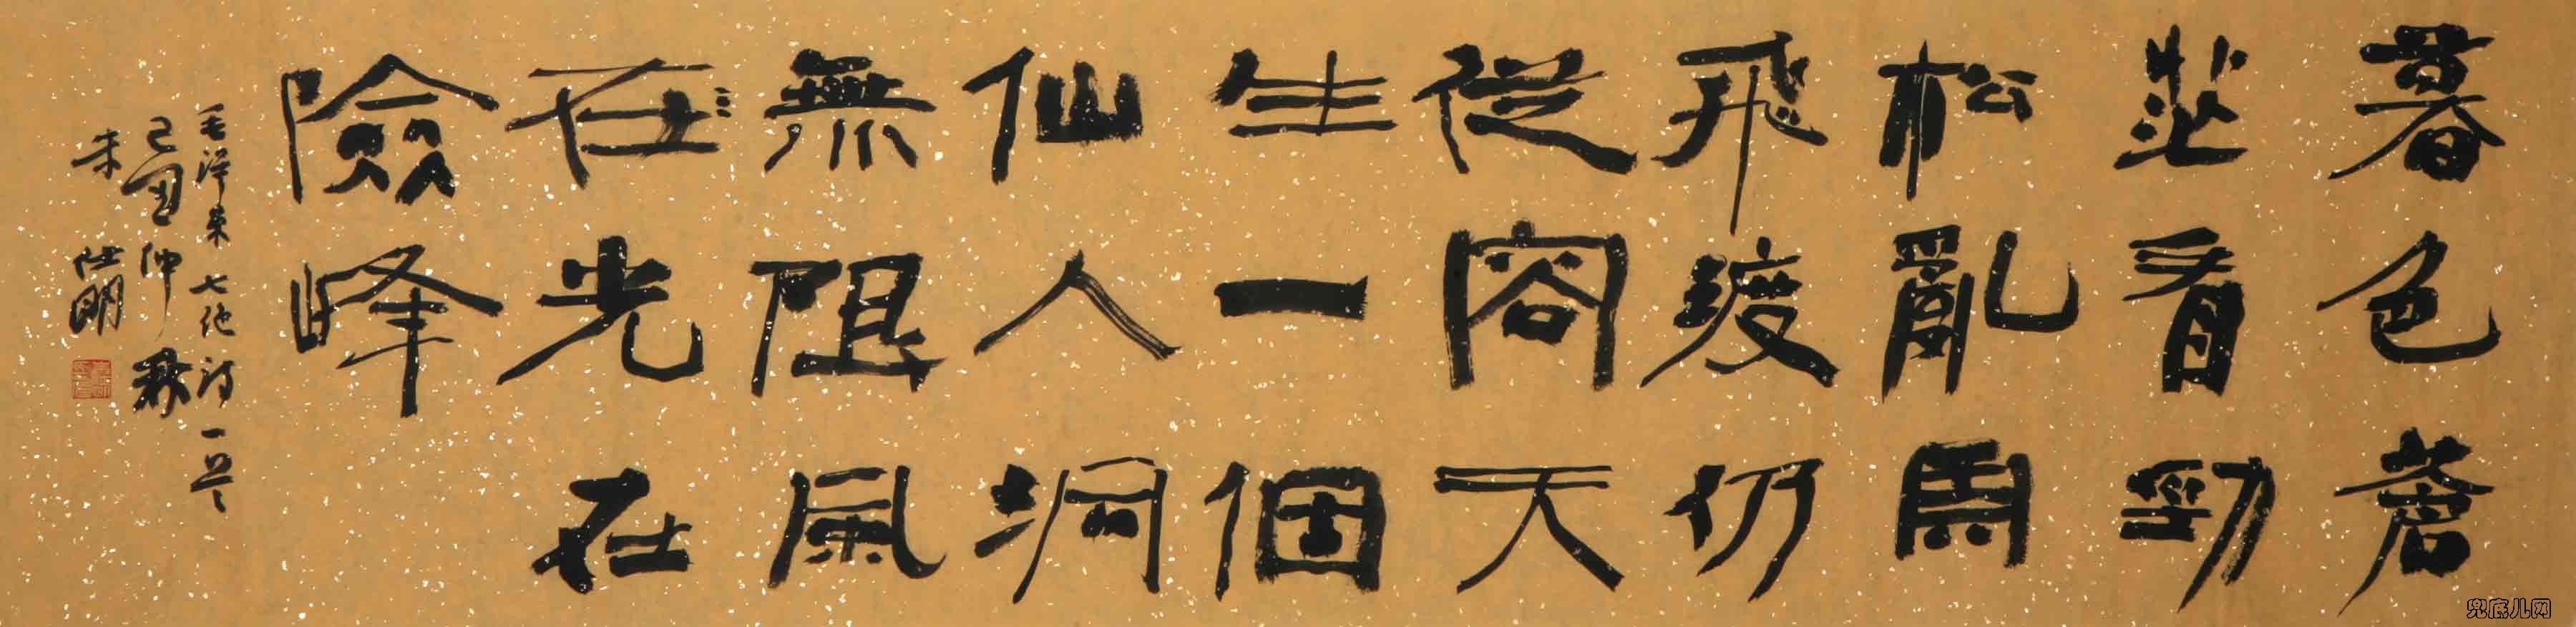 暮色蒼
茫看勁
松亂雲
飛渡仍
從容天
生一個
仙人洞
無限風
在光在
險峰
毛澤東七絕詩一首
己丑仲秋
朱仕明
兜底儿网